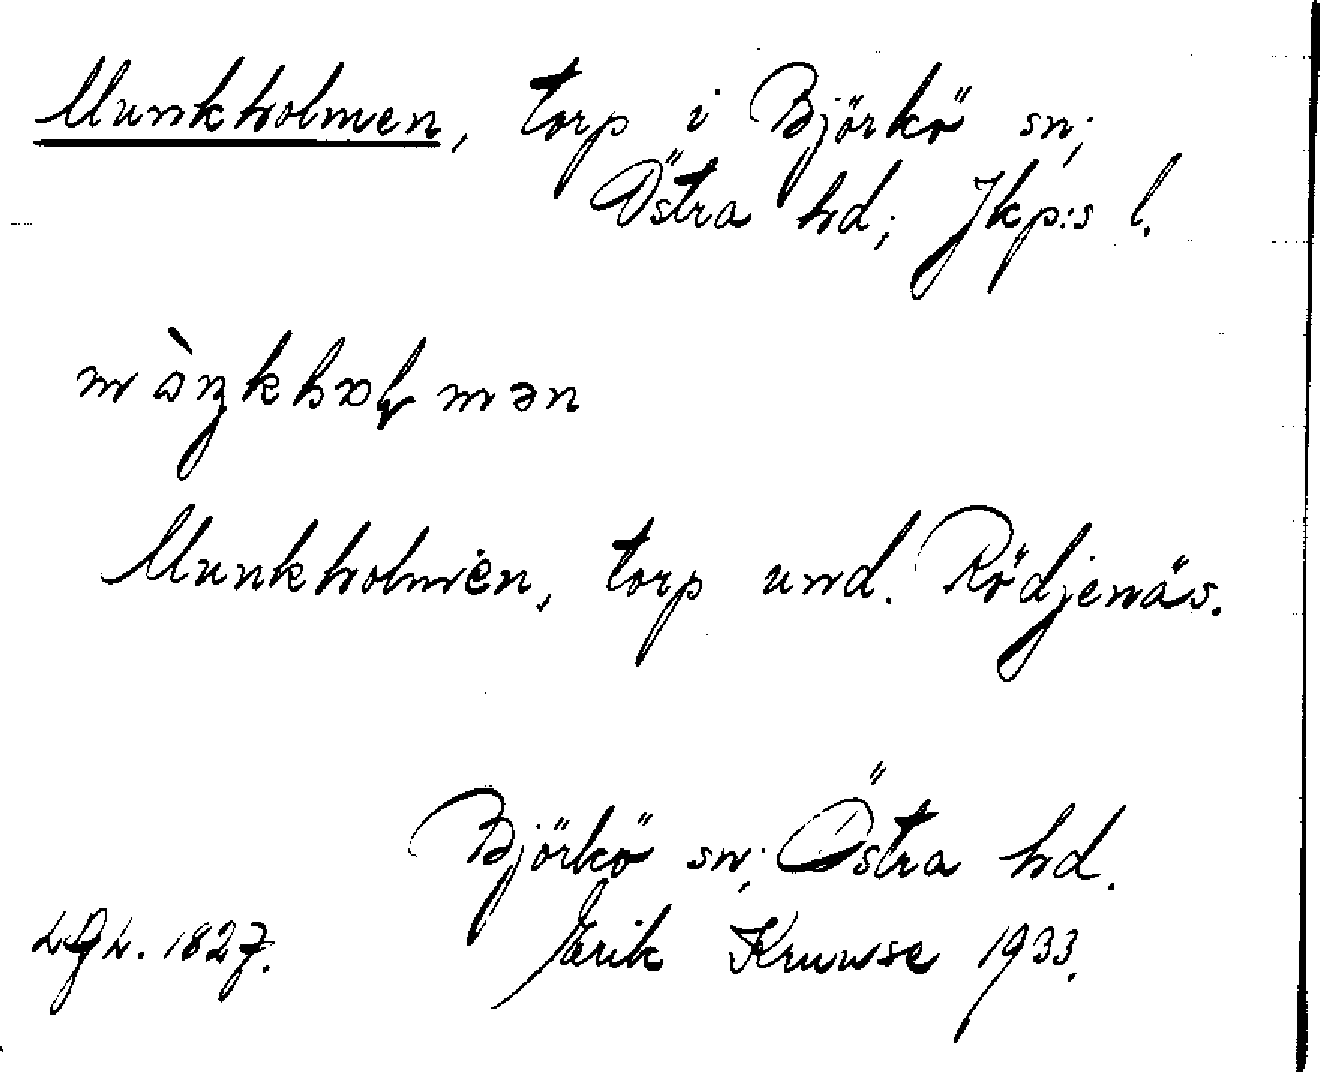 Munkholmen, torp i Björkö sn;
Östra hd; Jkp:s l.
Munkholmen, torp und. Rödjenäs.
Björkö sn; Östra hd.
Erik Kruuse 1933.
LGL. 1827.